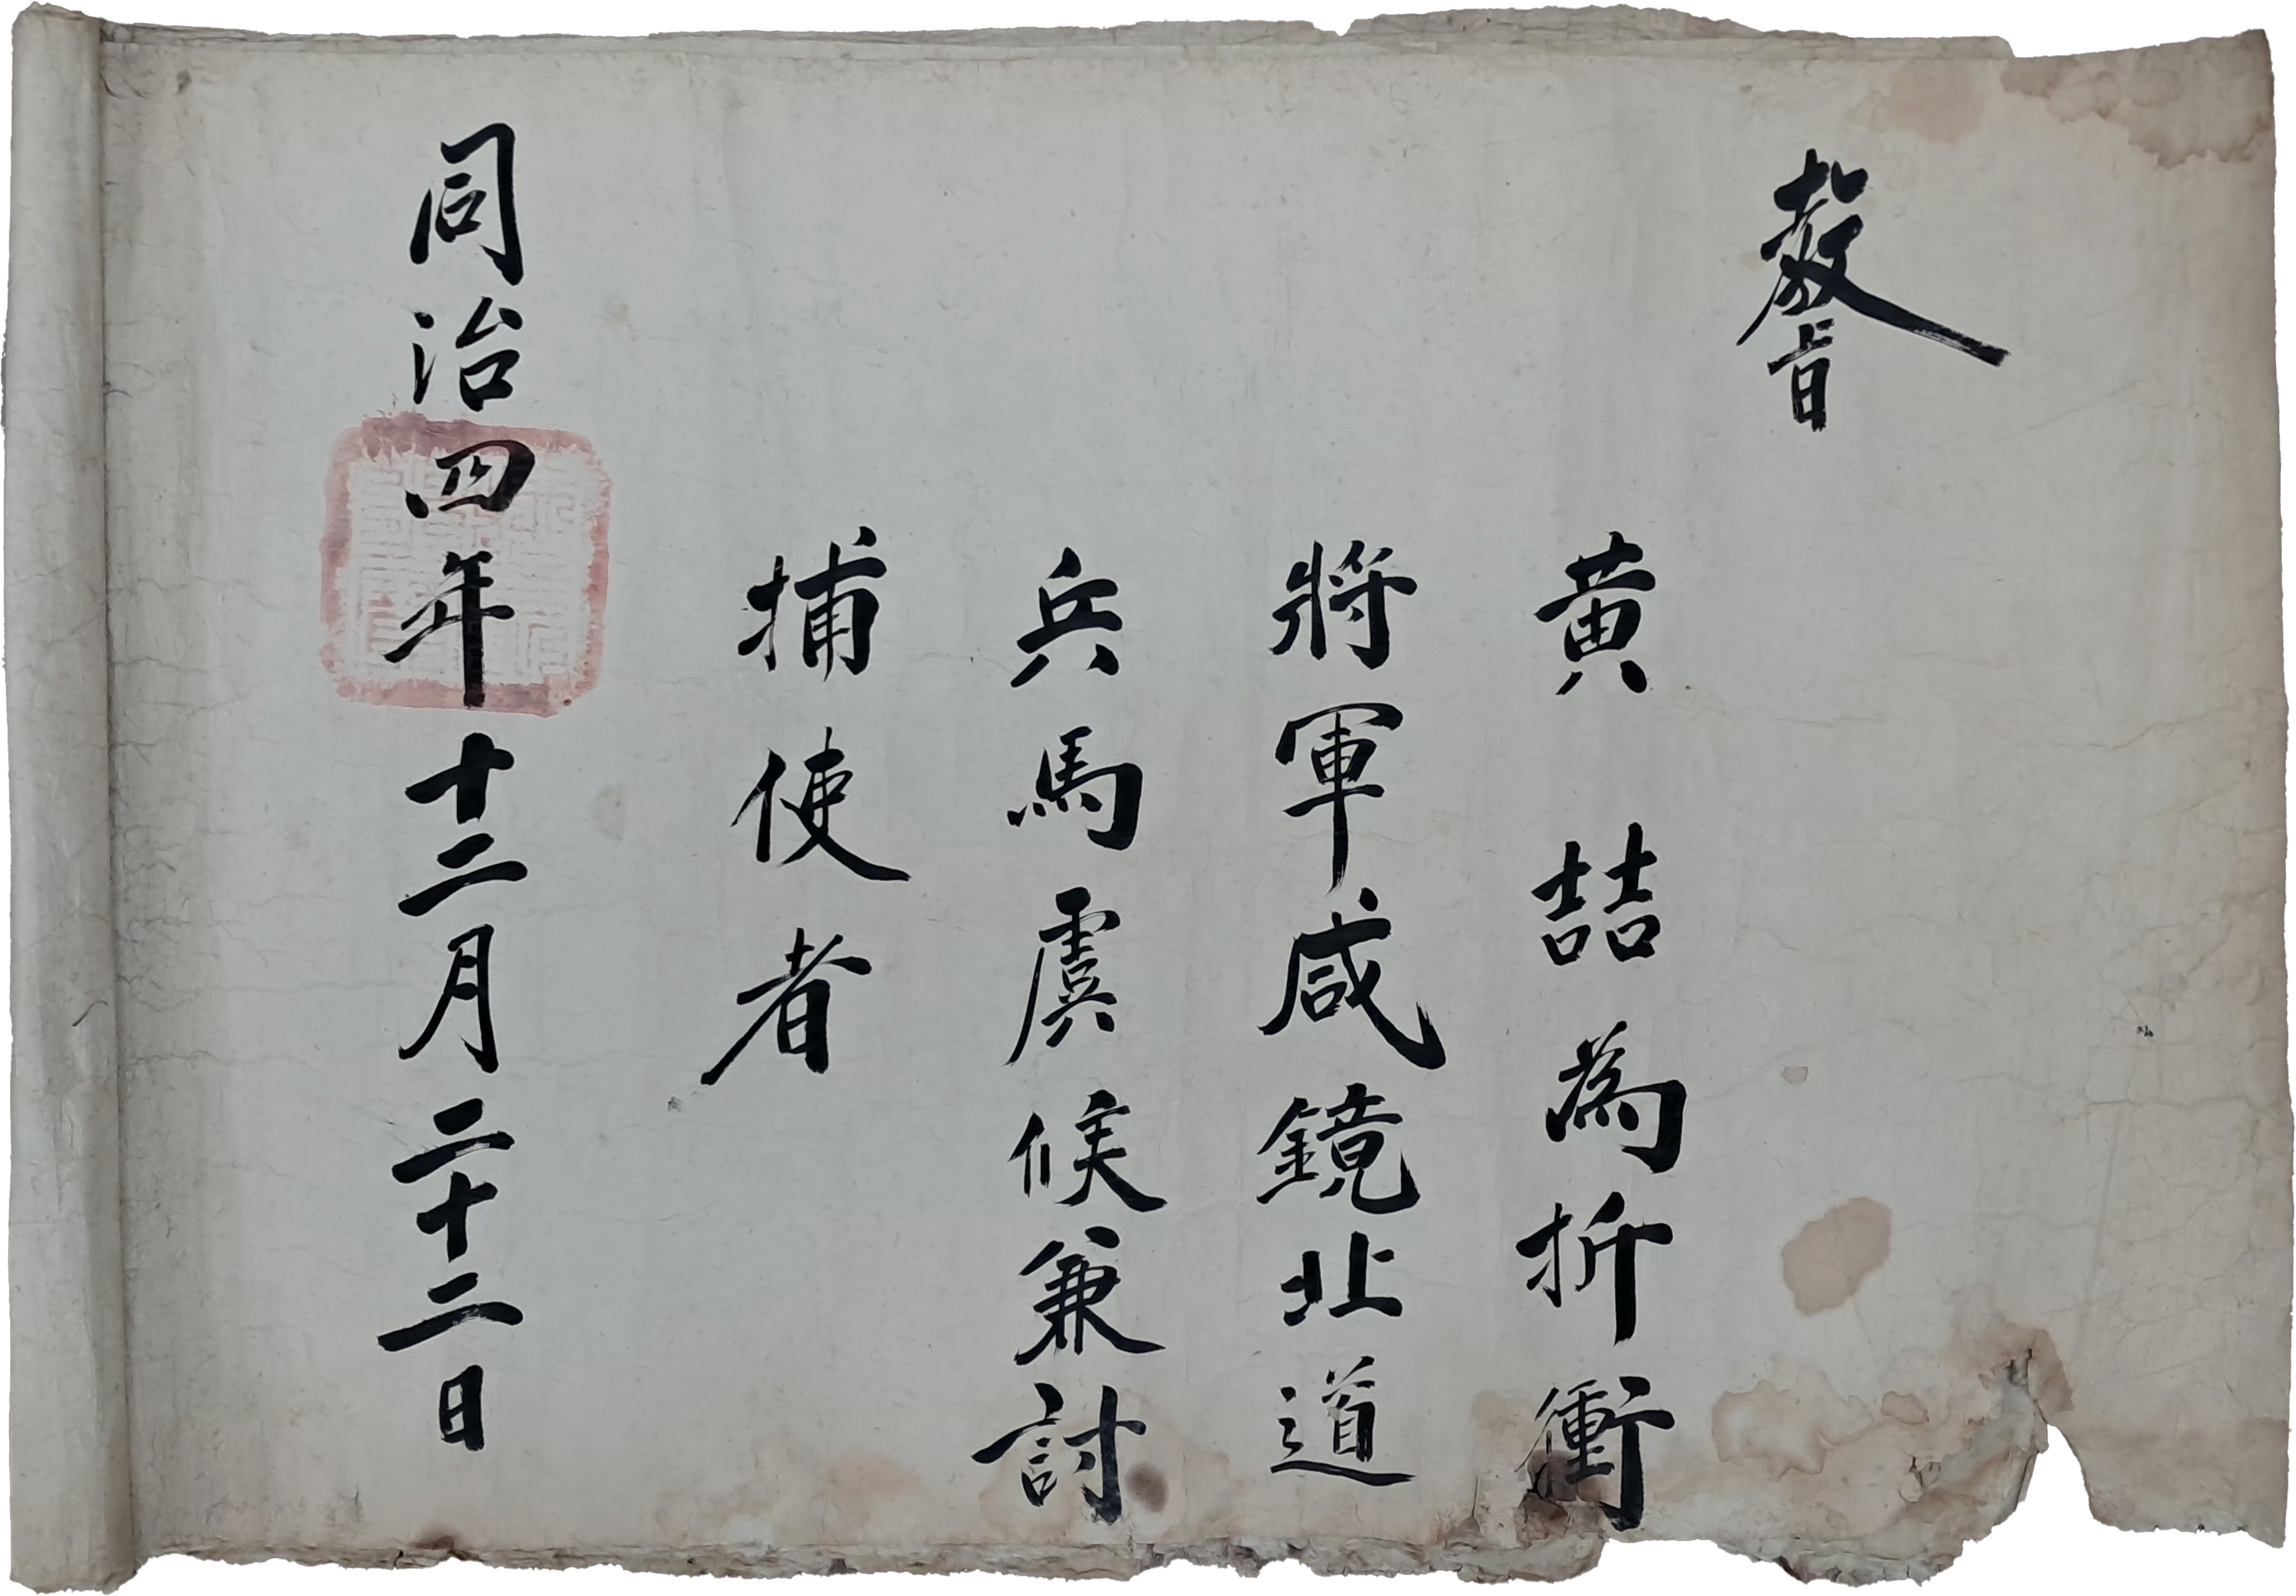 敎旨
黄喆為折衝
將軍咸鏡北道
兵馬虞候兼討
捕使者
同治四年十二月二十二日